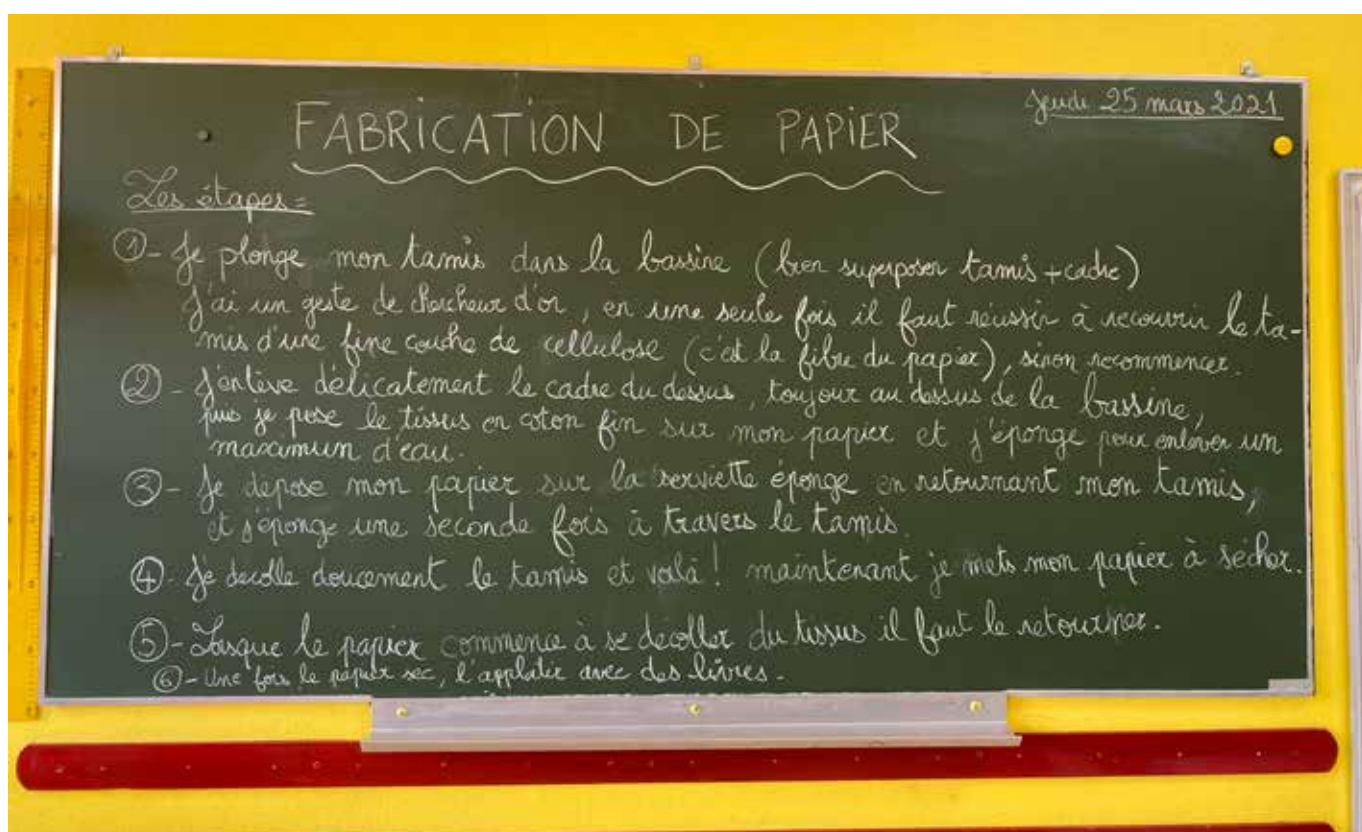 Jeudi 25 mars 2021
FABRICATION DE PAPIER
Les étapes =
① - Je plonge mon tamis dans la bassine (bien superposer tamis + cadre)
J'ai un geste de chercheur d'or, en une seule fois il faut réussir à recouvrir le ta-
mis d'une fine couche de cellulose (c'est la fibre du papier), sinon recommencer.
② - J'enlève délicatement le cadre du dessus, toujour au dessus de la bassine,
puis je pose le tissus en coton fin sur mon papier et j'éponge pour enlever un
maximum d'eau.
③ - Je dépose mon papier sur la serviette éponge en retournant mon tamis,
et j'éponge une seconde fois à travers le tamis.
④ - Je décolle doucement le tamis et voilà ! maintenant je mets mon papier à sécher.
⑤ - Lorsque le papier commence à se décoller du tissus il faut le retourner.
⑥ - Une fois le papier sec, l'applatir avec des livres.